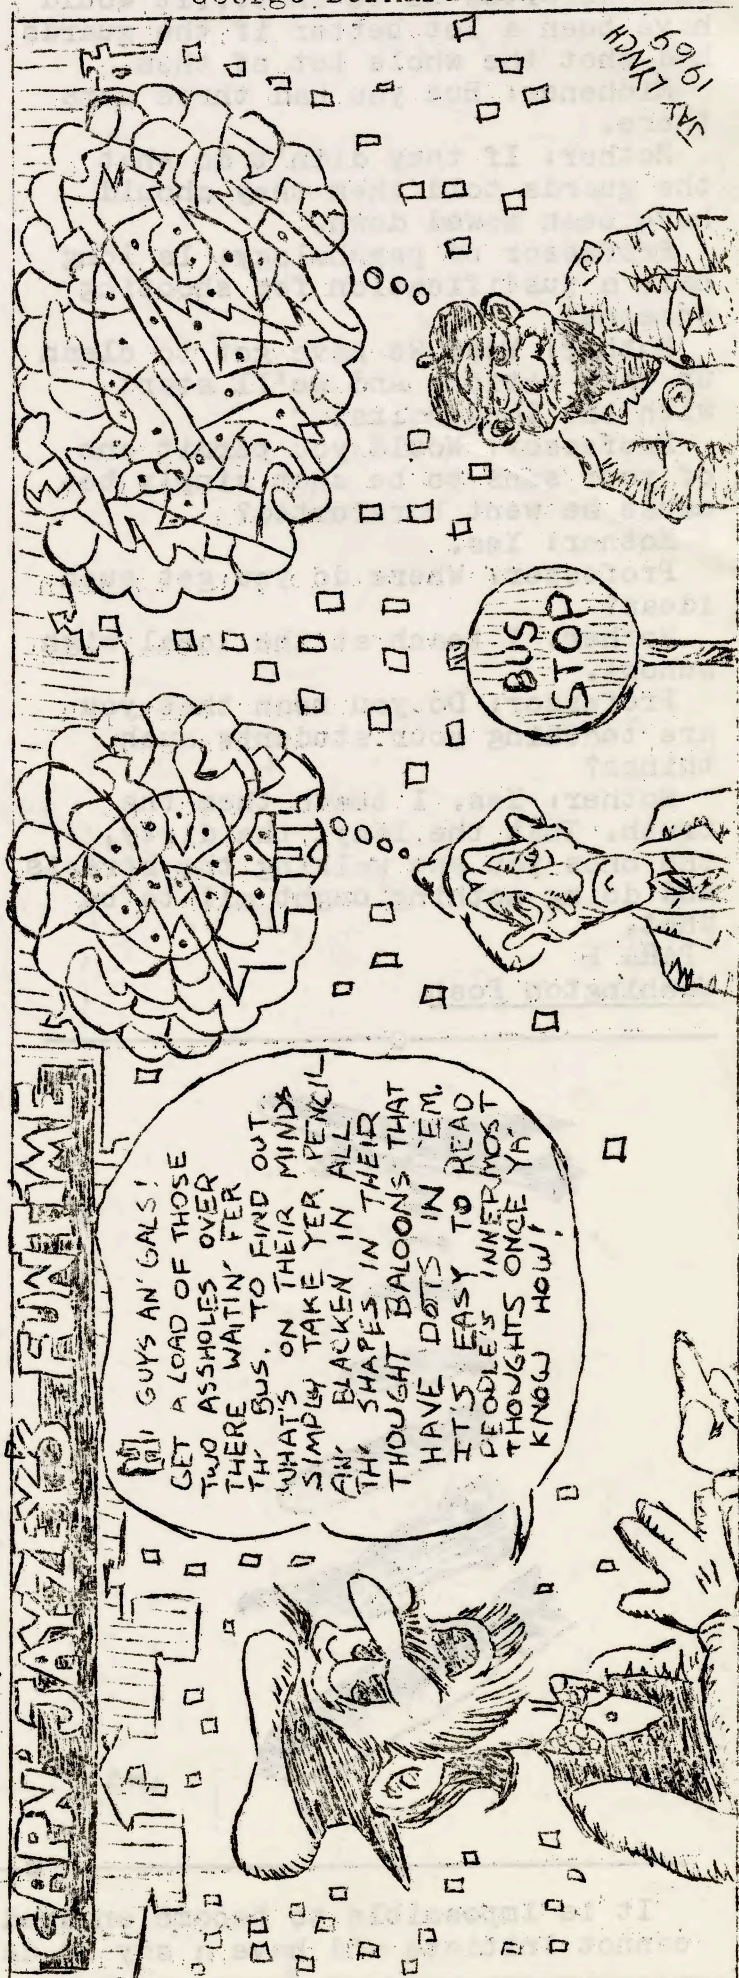 CAPN' JAYZEY'S FUN TIME
HI GUYS AN' GALS!
GET A LOAD OF THOSE
TWO ASSHOLES OVER
THERE WAITIN' FER
TH' BUS. TO FIND OUT
WHAT'S ON THEIR MINDS
SIMPLY TAKE YER PENCIL
AN' BLACKEN IN ALL
TH' SHAPES IN THEIR
THOUGHT BALOONS THAT
HAVE DOTS IN 'EM.
IT'S EASY TO READ
PEOPLE'S INNERMOST
THOUGHTS ONCE YA'
KNOW HOW!
BUS
STOP
JAY LYNCH
1969